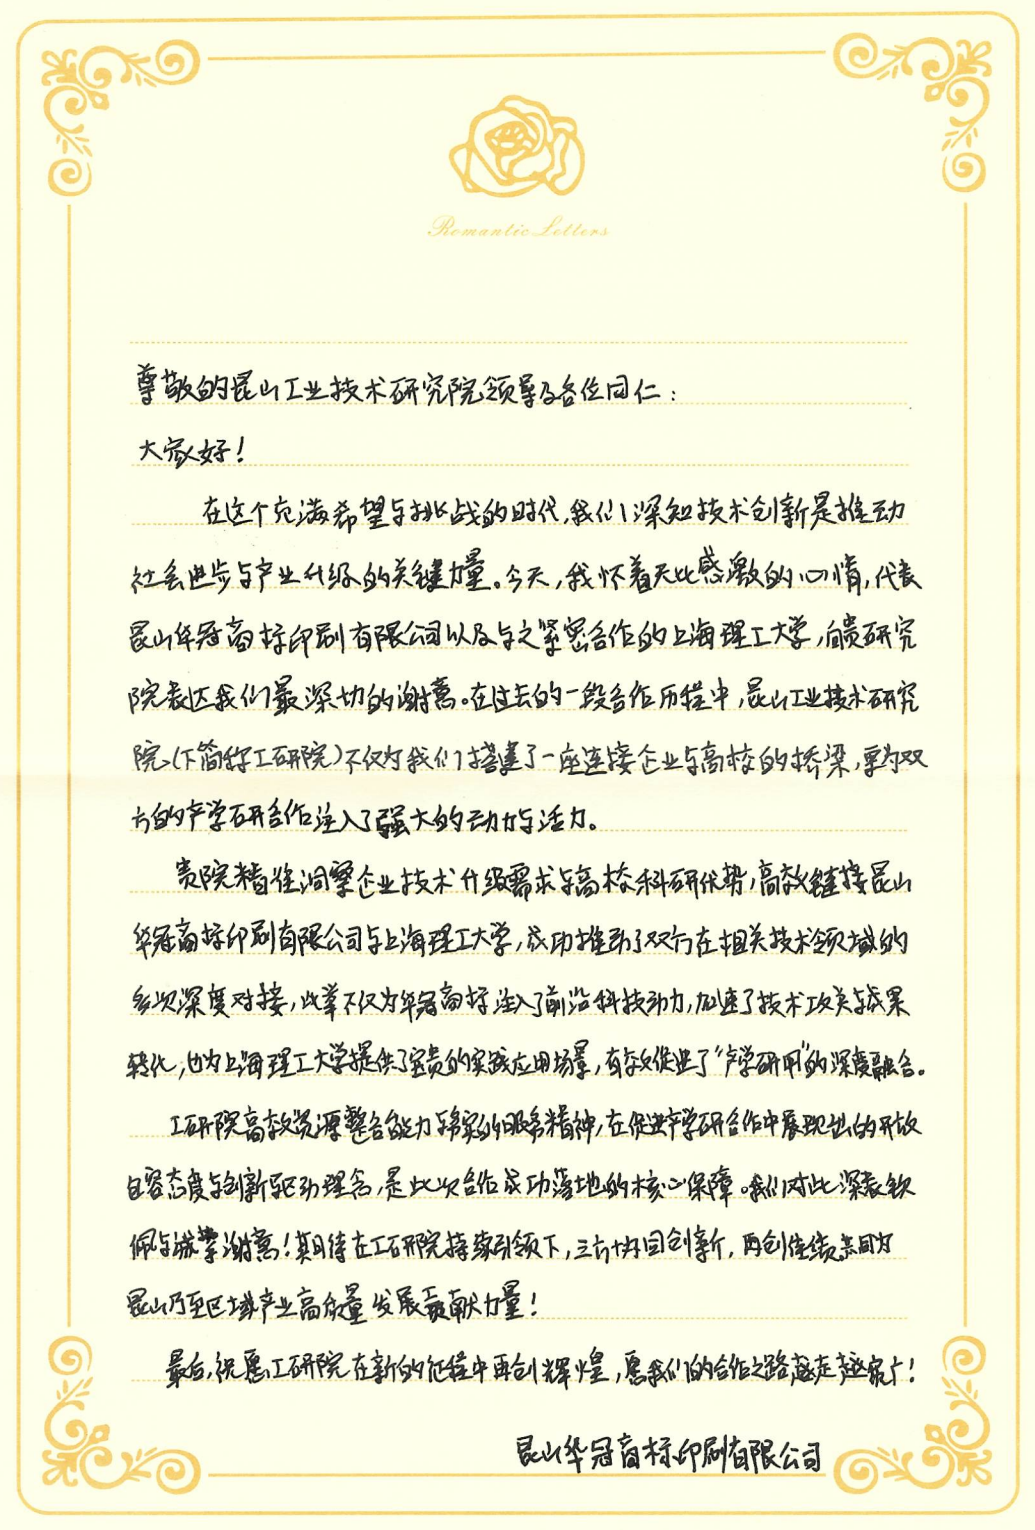 Romantic Letters
尊敬的昆山工业技术研究院领导及各位同仁：
大家好！
在这个充满希望与挑战的时代，我们深知技术创新是推动
社会进步与产业升级的关键力量。今天，我怀着无比感激的心情，代表
昆山华冠商标印刷有限公司以及与之紧密合作的上海理工大学，向贵研究
院表达我们最深切的谢意。在过去的一段合作历程中，昆山工业技术研究
院（下简称工研院）不仅为我们搭建了一座连接企业与高校的桥梁，更为双
方的产学研合作注入了强大的动力与活力。
贵院精准洞察企业技术升级需求与高校科研优势，高效链接昆山
华冠商标印刷有限公司与上海理工大学，成功推动了双方在相关技术领域的
多次深度对接，此举不仅为华冠商标注入了前沿科技动力，加速了技术攻关与成果
转化，也为上海理工大学提供了宝贵的实践应用场景，有效促进了“产学研用”的深度融合。
工研院高效资源整合能力与务实的服务精神，在促进产学研合作中展现出的开放
包容态度与创新驱动理念，是此次合作成功落地的核心保障。我们对此深表钦
佩与诚挚谢意！期待在工研院持续引领下，三方协同创新，再创佳绩共同为
昆山乃至区域产业高质量发展贡献力量！
最后，祝愿工研院在新的征程中再创辉煌，愿我们的合作之路越走越宽广！
昆山华冠商标印刷有限公司